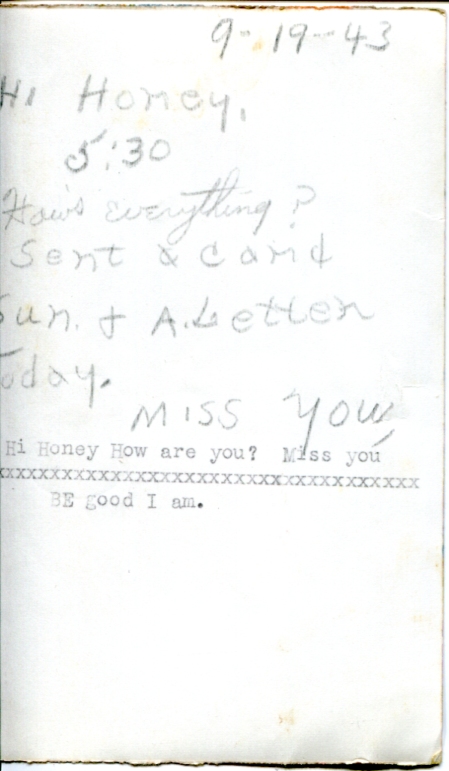 9-19-43
Hi Honey,
5:30
How's everything?
Sent a Card
Sun. + A. Letter
Today.
Miss You,
Hi Honey How are you?  Miss you
xxxxxxxxxxxxxxxxxxxxxxxxxxxxxxxxxxxxx
BE good I am.